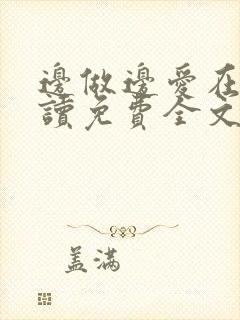 邊做邊愛在
讀免費全文
盖满